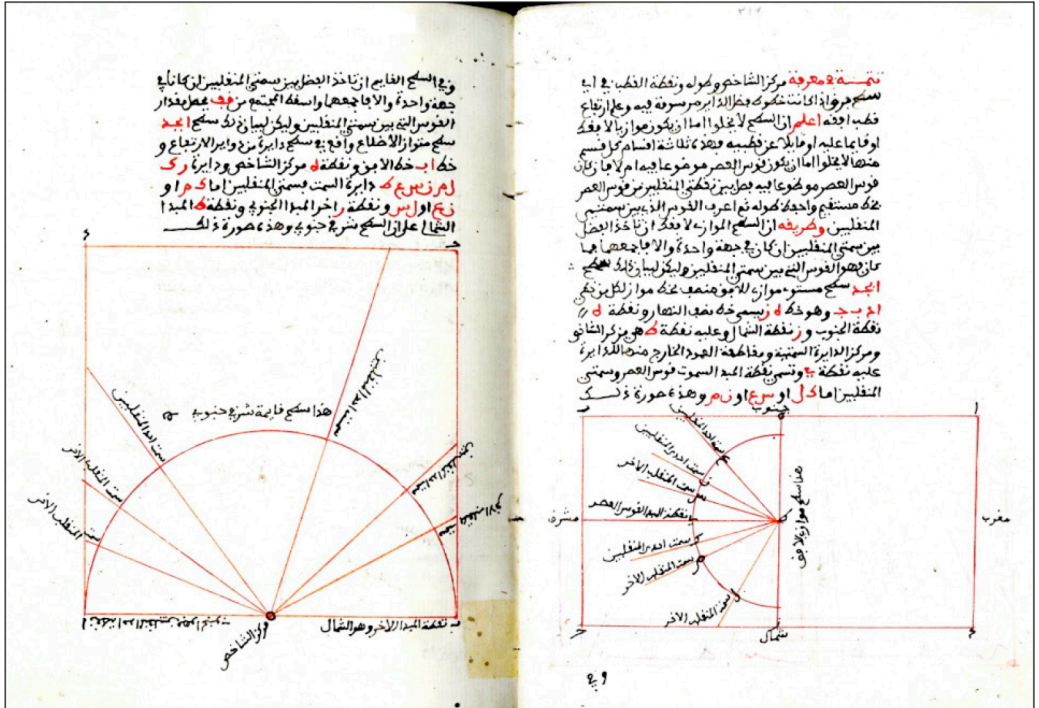 تتمة في معرفة مركز الشاخص وطوله ونقطة القطب في اي
سطح فرض اذا كانت خطوط فضل الداير مرسومة فيه وعلم ارتفاع
قطب افقه اعلم ان السطح لا يخلوا اما ان يكون موازيا لافقك
او قايما عليه او مايلا عن قطبيه فهذه ثلاثة اقسام كل قسم
منها لا يخلوا اما ان يكون قوس العصر موضوعا فيه ام لا فان كان
قوس العصر موضوعا فيه فصل بين نقطتي المنقلبين من قوس العصر
بخط مستقيم واحفظ طوله ثم اعرف القوس الذي بين سمتي
المنقلبين وطريقه ان السطح الموازي لافقك ان تاخذ الفضل
بين سمتي المنقلبين ان كان في جهة واحدة والا فاجمعهما فما
كان فهو القوس التي بين سمتي المنقلبين وليكن لبيان ذلك سطح
ابجد سطح مستو مواز للافق منصف بخط مواز لكل من
اد ب ج وهو خط ه ز يسمى خط نصف النهار ونقطة ه
نقطة الجنوب و ز نقطة الشمال وعليه نقطة ط هي مركز الشاخص
ومركز الدايرة السمتية ومقاطعة العمود الخارج منها للدايرة
عليه نقطة ي وتسمى نقطة المبدا لسموت قوس العصر وسمتي
المنقلبين اما ك ل او س ع او ن م وهذه صورة ذلك
جنوب
سمت احد المنقلبين
سمت احد المنقلبين
سمت المنقلب الاخر
نقطة المبدا لقوس العصر
سمت احد المنقلبين
سمت المنقلب الاخر
سمت المنقلب الاخر
هذا سطح موازي للافق
مشرق
مغرب
شمال
وفي
وفي السطح القايم ان تاخذ الفضل بين سمتي المنقلبين ان كانا في
جهة واحدة والا فاجمعهما واسقط المجتمع من قف يحصل مقدار
القوس التي بين سمتي المنقلبين وليكن لبيان ذلك سطح ابجد
سطح متوازي الاضلاع واقع في سطح دايرة من دواير الارتفاع و
خط اب خط الافق ونقطة ه مركز الشاخص ودايرة
دايرة السمت فسمتي المنقلبين اما ك م او
ن ع او ل س ونقطة ر اخر المبدا الجنوبي ونقطة ط المبدا
الشمالي علي ان السطح شرقي جنوبي وهذه صورة ذلك
سمت احد المنقلبين
سمت احد المنقلبين
هذا سطح قايمة شرقي جنوبي
سمت المنقلب الاخر
سمت احد المنقلبين
سمت المنقلب الاخر
سمت المنقلب الاخر
نقطة المبدا الاخر وهو الشمال
مركز الشاخص